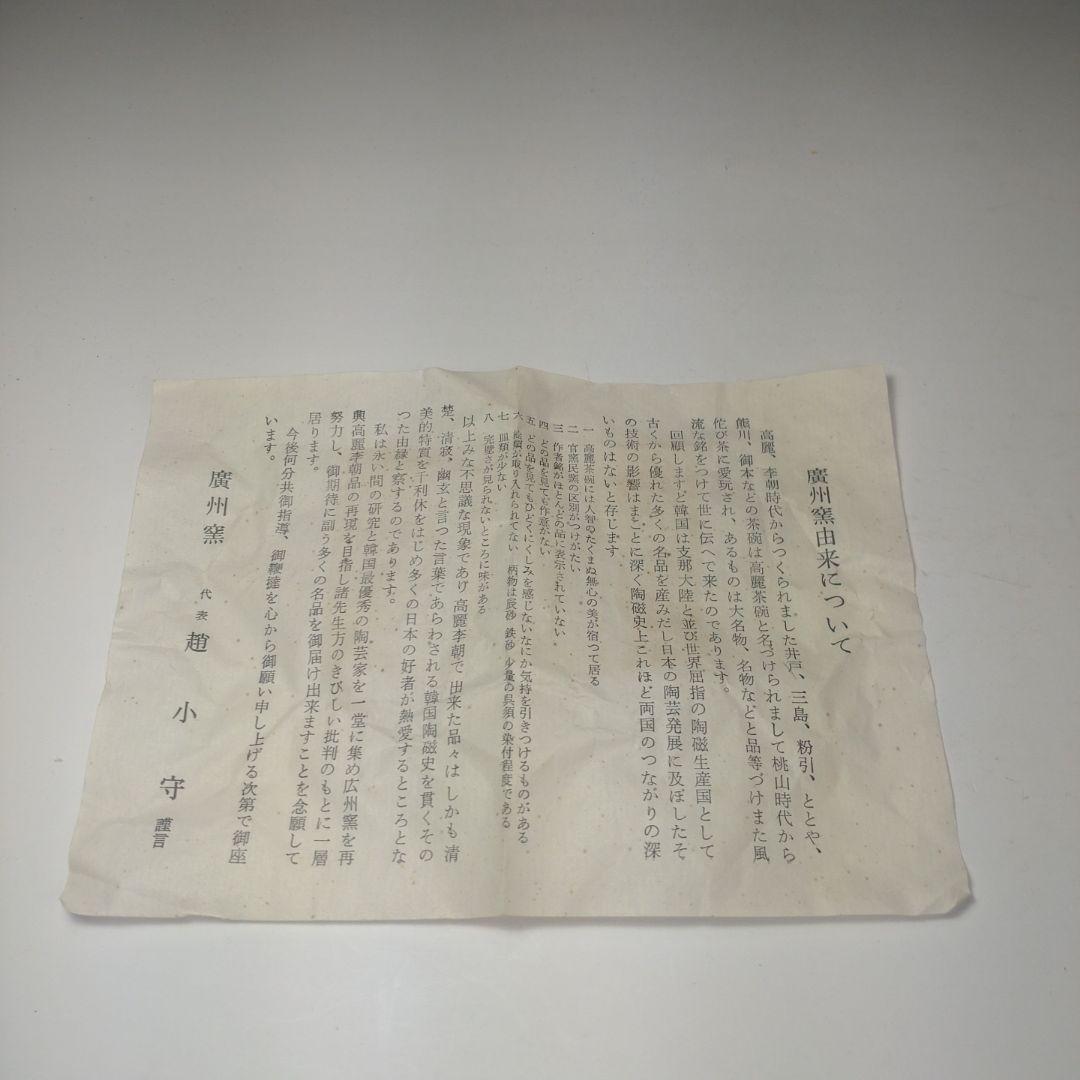 廣州窯由来について
高麗、李朝時代からつくられました井戸、三島、粉引、ととや、
熊川、御本などの茶碗は高麗茶碗と名づけられまして桃山時代から
侘び茶に愛玩され、あるものは大名物、名物などと品等づけまた風
流な銘をつけて世に伝へて来たのであります。
回顧しますど韓国は支那大陸と並び世界屈指の陶磁生産国として
古くから優れた多くの名品を産みだし日本の陶芸発展に及ぼしたそ
の技術の影響はまことに深く陶磁史上これほど両国のつながりの深
いものはないと存じます
一 高麗茶碗には人智のたくまぬ無心の美が宿つて居る
二 官窯民窯の区別がつけがたい
三 作者銘がほとんどの品に表示されていない
四 どの品を見ても作意がない
五 どの品を見てもひどくにくしみを感じないなにか気持を引きつけるものがある
六 絵柄が取り入れられてない 柄物は辰砂 鉄砂 少量の呉須の染付程度である
七 皿類が少ない
八 完璧さが見られないところに味がある
以上みな不思議な現象であり 高麗李朝で 出来た品々は しかも 清
楚、清寂、幽玄と言つた言葉であらわされる韓国陶磁史を貫くその
美的特質を千利休をはじめ多くの日本の好者が熱愛するところとな
つた由縁と察するのであります。
私は永い間の研究と韓国最優秀の陶芸家を一堂に集め広州窯を再
興高麗李朝品の再現を目指し諸先生方のきびしい批判のもとに一層
努力し、御期待に副う多くの名品を御届け出来ますことを念願して
居ります。
今後何分共御指導、御鞭撻を心から御願い申し上げる次第で御座
います。
廣州窯 代表 趙 小 守 謹言